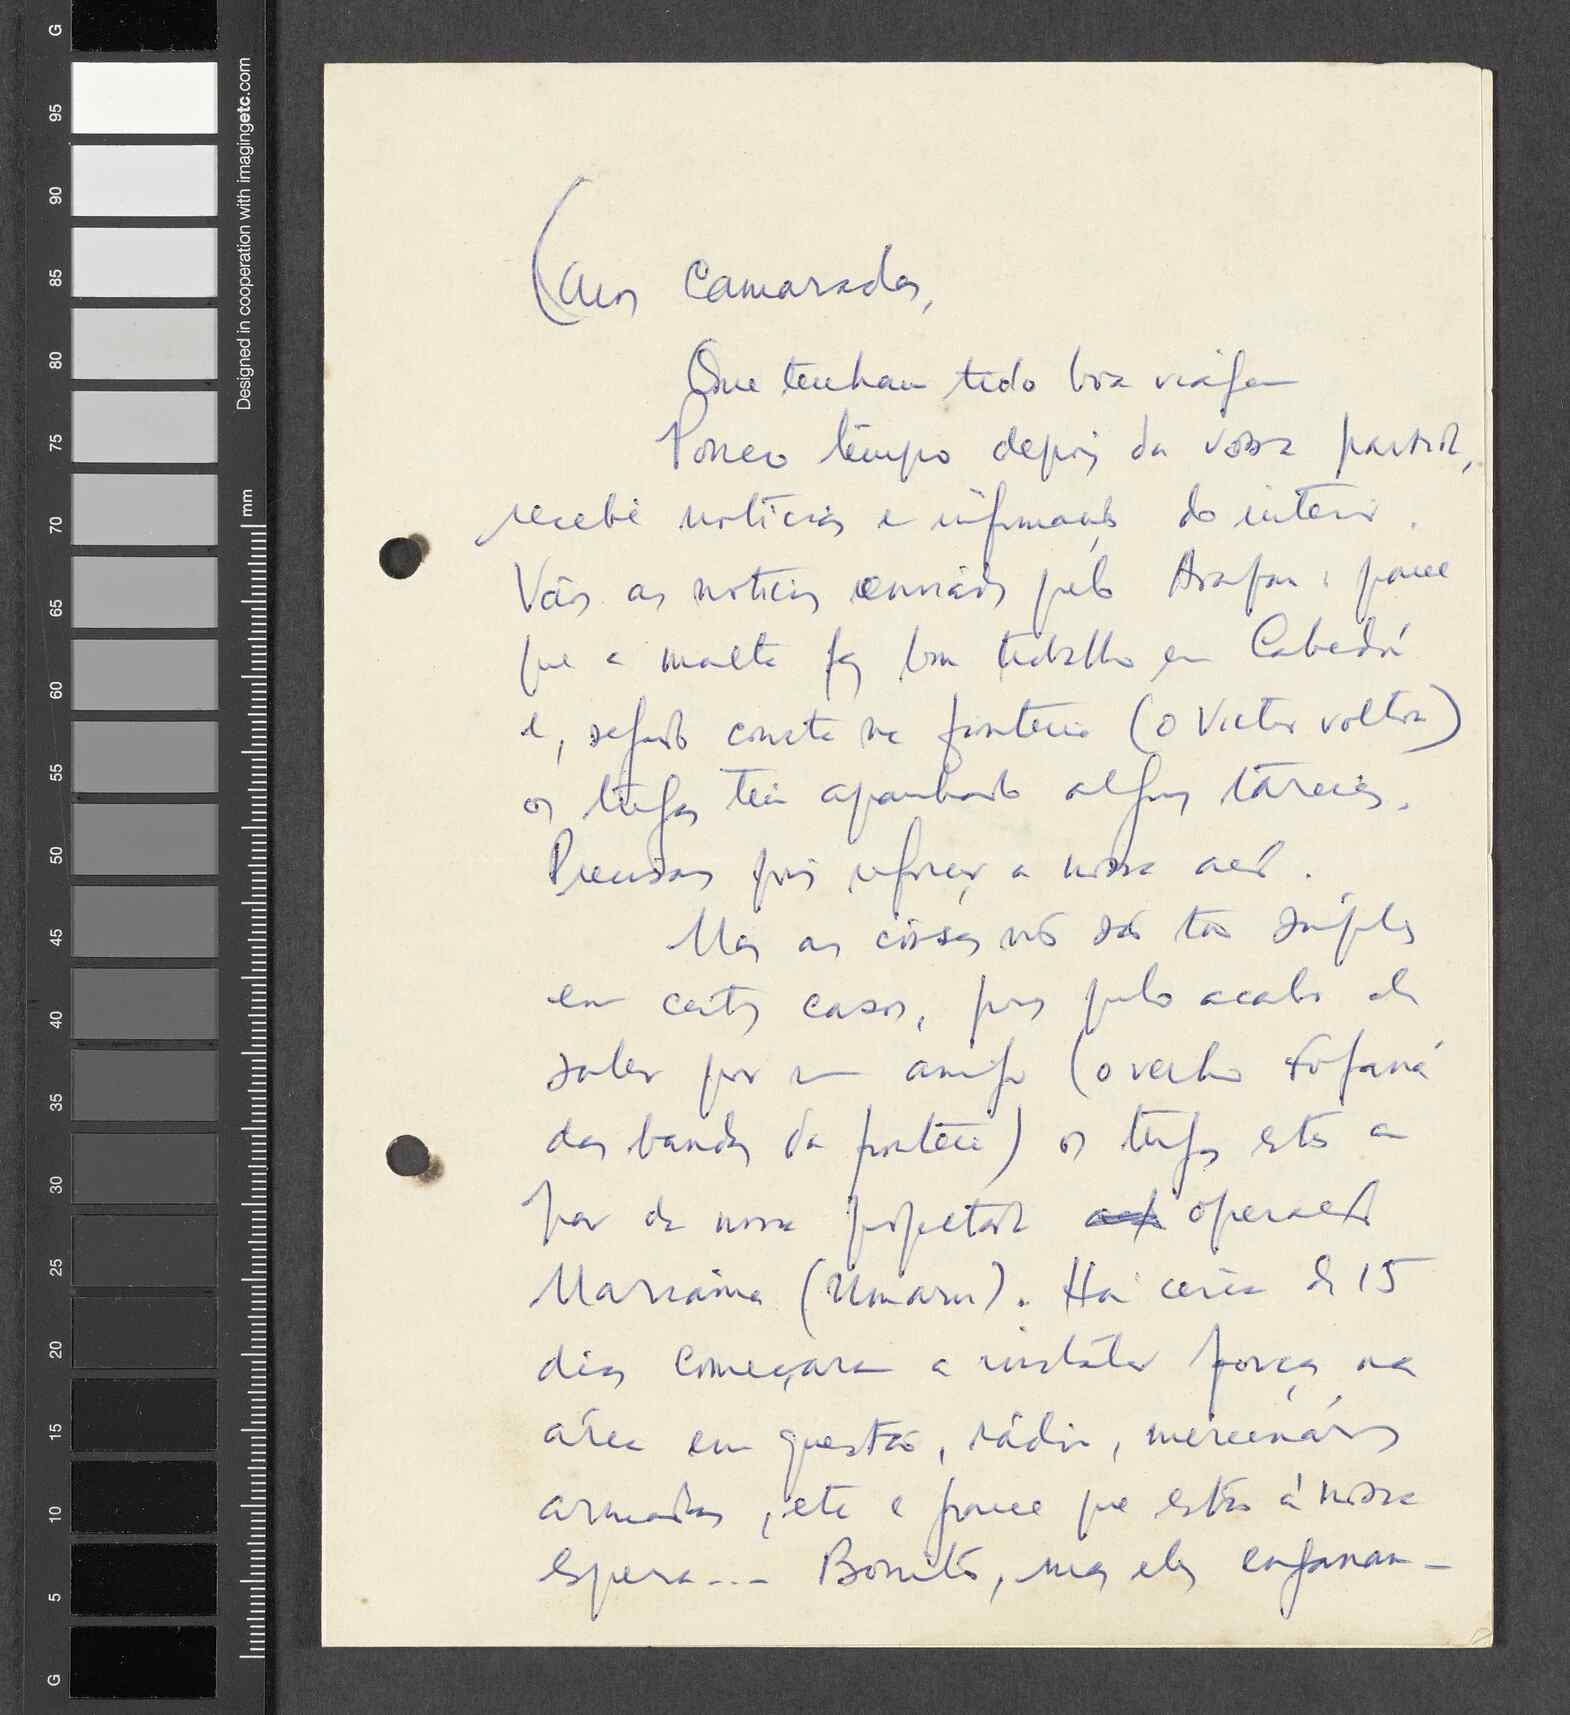 Caros Camaradas,
Que tenham tido boa viagem
Pouco tempo depois da vossa partida,
recebi notícias e informações do interior.
Vão as notícias enviadas pelo Arafan: parece
que a malta fez bom trabalho em Cabedú
e, segundo consta na fronteira (o Victor voltou)
os tugas têm apanhado algumas tareias.
Precisamos pois reforçar a nossa acção.
Mas as coisas não são tão simples
em certos casos, pois pelo acabo de
saber por um amigo (o velho Fofaná
das bandas da fronteira) os tugas estão a
par da nossa projectada operação
Mariama (Umaru). Há cerca de 15
dias começaram a instalar forças na
área em questão, rádio, mercenários
armados, etc e parece que estão à nossa
espera... Bonito, mas eles enganam-
G
95
90
85
80
75
70
65
60
55
50
45
40
35
30
25
20
15
10
5
G
Designed in cooperation with imagingetc.com
mm